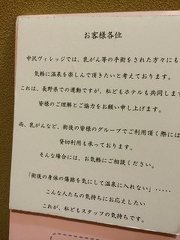 お客様各位
中沢ヴィレッジでは、乳がん等の手術をされた方々にも
気軽に温泉を楽しんで頂きたいと考えております。
これは、長野県での運動ですが、私どもホテルも共同しま
皆様のご理解とご協力をお願い申し上げます。
尚、乳がんなど、術後の皆様のグループでご利用頂く際には
貸切利用も承っております。
そんな場合には、お気軽にご相談ください。
「術後の身体の傷跡を気にして温泉に入れない・・・・・
こんな人たちの気持ちにお応えしたい
これが、私どもスタッフの気持ちです。